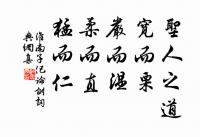 聖人之道
寬而栗
嚴而溫
柔而直
猛而仁
淮南子氾論訓詞
典網集